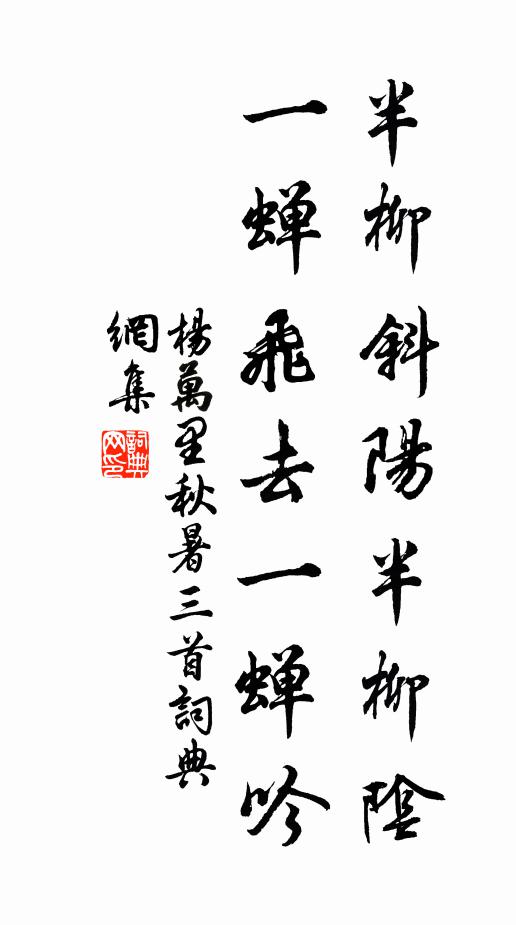 半柳斜陽半柳陰
一蝉飛去一蝉吟
楊萬里秋暑三首詞典
網集
詞典
网印